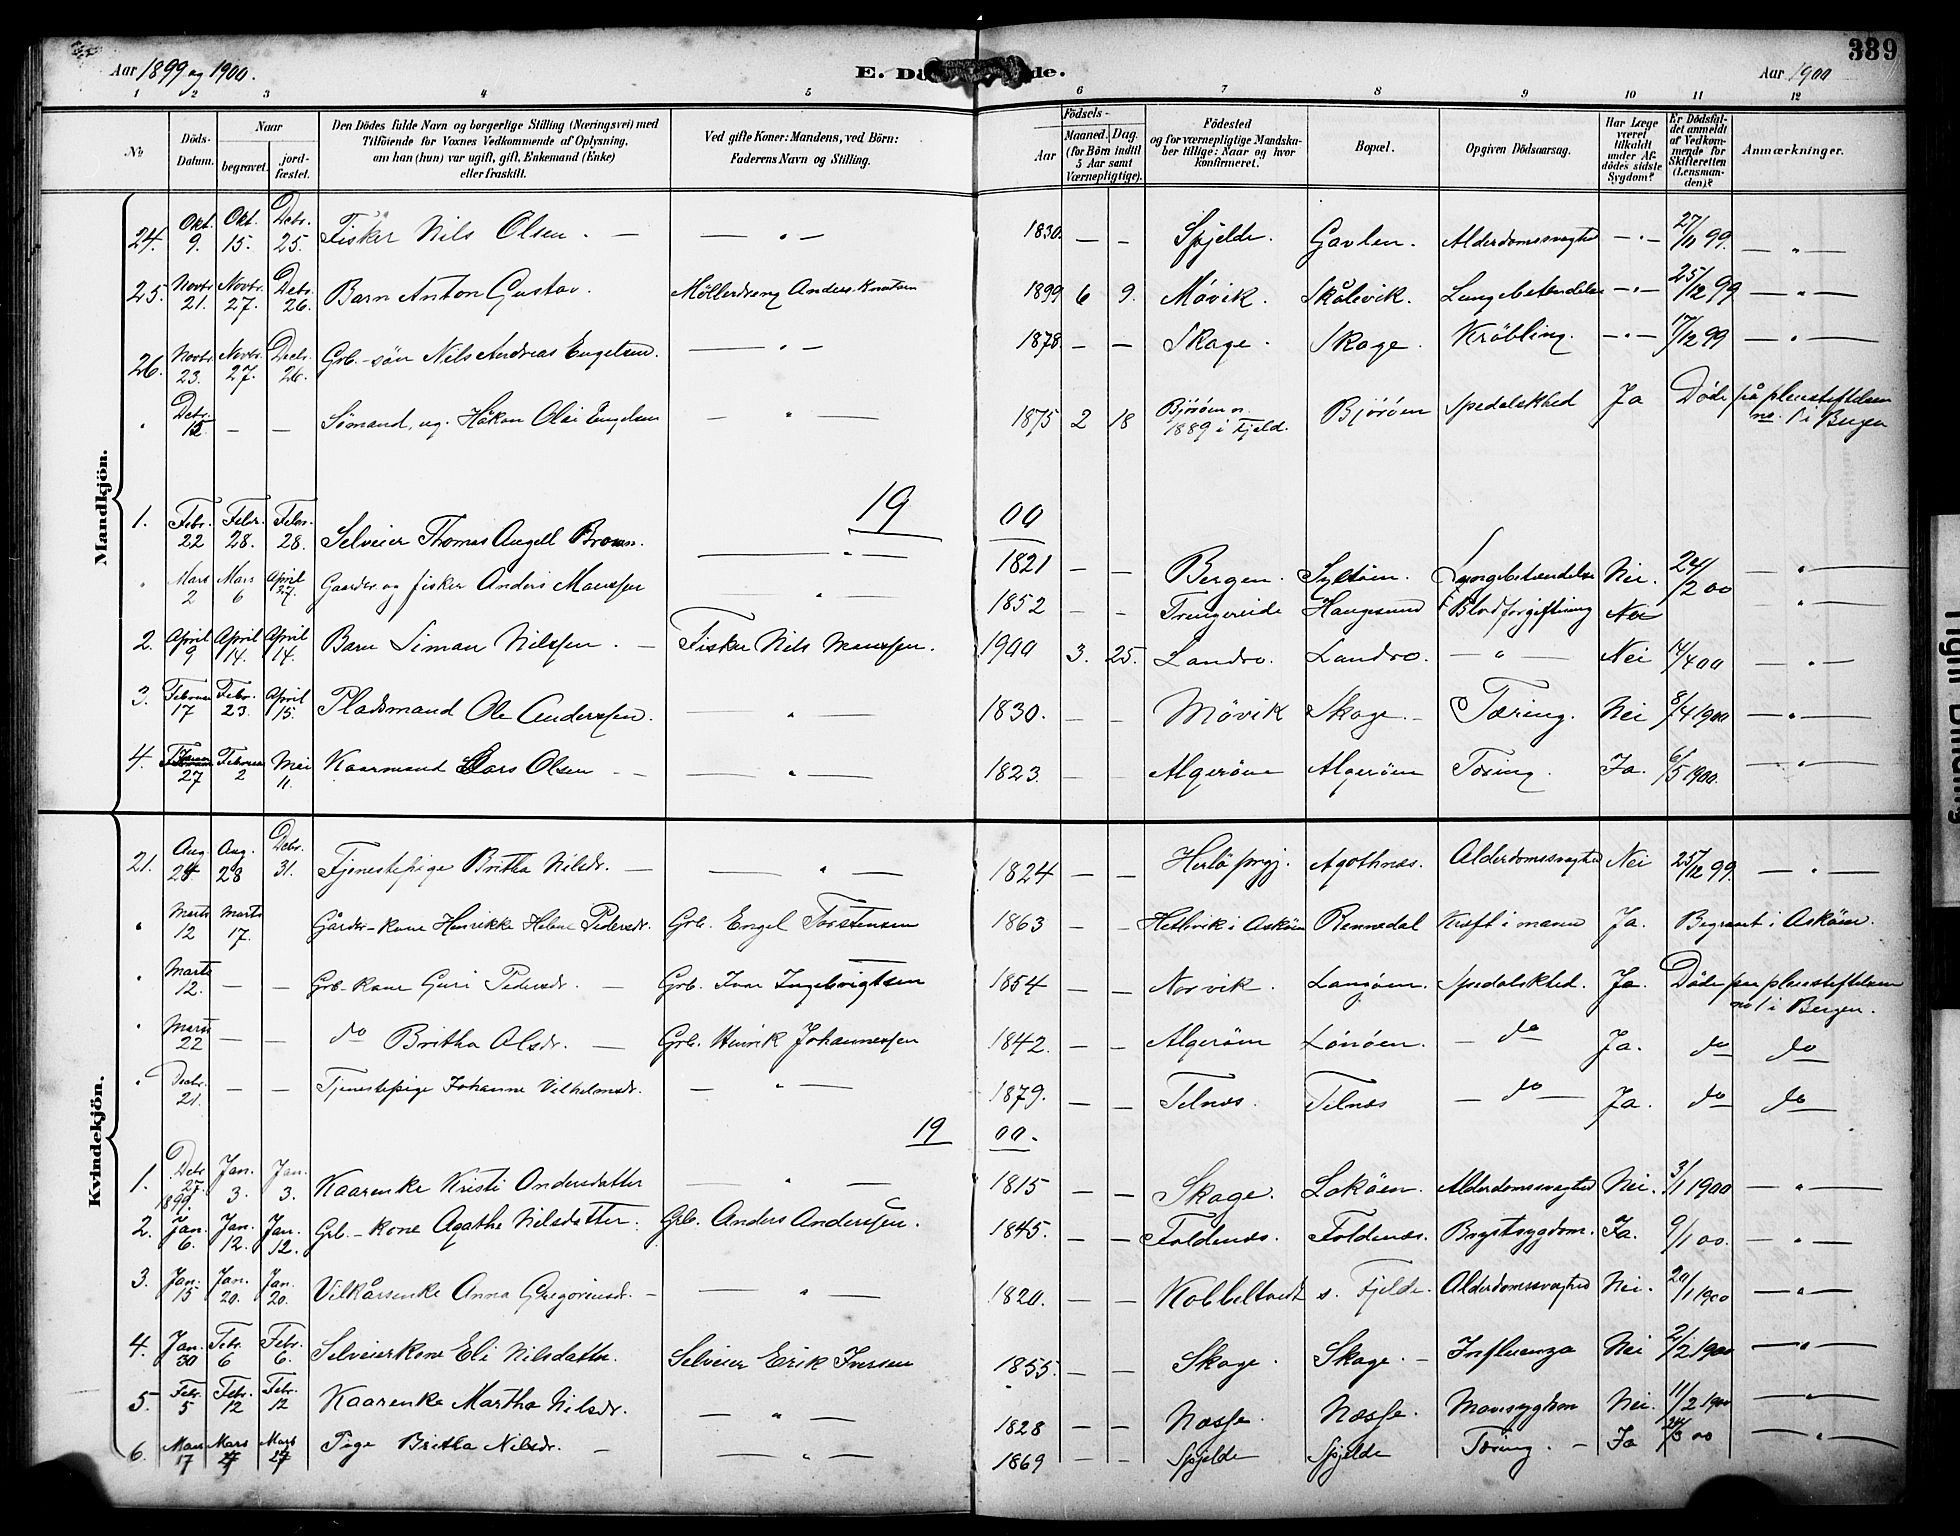 Aar 1899 og 1900.
E. Dö de.
Aar 1900
339
1 2 3 4 5 6 7 8 9 10 11 12
No
Döds-Datum.
Naar
begravet.
jord-fæstet.
Den Dödes fulde Navn og borgerlige Stilling (Næringsvei) med
Tilföiende for Voxnes Vedkommende af Oplysning,
om han (hun) var ugift, gift, Enkemand (Enke)
eller fraskilt.
Ved gifte Koner: Mandens, ved Börn:
Faderens Navn og Stilling.
Födsels-
Aar
Maaned. Dag.
(for Börn indtil
5 Aar samt
Værnepligtige).
Födested
og for værnepligtige Mandska-
ber tillige: Naar og hvor
konfirmeret.
Bopæl.
Opgiven Dödsaarsag.
Har Læge
været
tilkaldt
under Af-
dödes sidste
Sygdom?
Er Dödsfal-
det anmeldt
af Vedkom-
mende for
Skifteretten
(Lensman-
den)?
Anmærkninger.
Mandkjön.
24. Okt. 9. Okt. 15. Debr. 25. Fisker Nils Olsen. — — " — 1830. — — Spjelde. Gavlen. Alderdomssvaghed — " — 27/10 99. — " —
25. Novbr. 21. Novbr. 27. Debr. 26. Barn Anton Gustav. Möllerdreng Anders Knutsen 1899 6 9. Móvik. Skålevik. Lungebetændelse — " — 25/12 99 — " —
26. Novbr. 23. Novbr. 27. Decbr. 26. Grb.-sön Nils Andreas Engelsen. — " — 1878. — — Skage. Skage. Kröbling. — " — 17/12 99 — " —
" Debr. 15. — — Sømand, ug. Håkon Olai Engelsen — " — 1875 2 18 Björöen n. 1889 i Fjeld. Björöen Spedalskhed Ja Døde på pleiestiftelsen no. 1 i Bergen
19 00
1. Febr. 22 Febr. 28. Febr. 28. Selveier Thomas Angell Brown. — " — 1821 — — Bergen. Syltöen. Lungebetændelse Nei. 24/2 00 — " —
" Mars 2 Mars 6 April 27. Gaardbr. og fisker Anders Monssen " — 1852 — — Trengereide Haugesund Blodforgiftning Nei "
2. April 9 April 14. April 14. Barn Simon Nilssen. — Fisker Nils Monssen. 1900 3. 25. Landro. Landro. — " — Nei 14/4 00 — " —
3. Februar 17 Febr. 23. April 15. Pladsmand Ole Anderssen. — " — 1830. — — Móvik Skage. — Tæring. Nei 8/4 1900 — " —
4. Januar 27 Februar 2 Mai 11. Kaarmand Lars Olsen — — " — 1823. — — Algeröen Algeröen Tæring. Ja. 6/5 1900. — " —
Kvindekjön.
21. Aug. 24 Aug. 28 Debr. 31. Tjenestepige Britha Nilsdr. — — " — 1824 — — Herlö prgj. Agothnæs. Alderdomssvaghed Nei 25/12 99. — " —
" Marts 12 Marts 17. Gårdbr.-kone Henrikke Helene Pedersdr. Grb. Engel Torstensen 1863 — — Hetlevik i Asköen Rennedal Kræft i maven Ja. Begravet i Asköen.
" Marts 12. — — Grb.-kone Guri Pedersdr. — Grb. Ivar Ingebrigtsen 1854 — — Norvik. Langöen. Spedalskhed. Ja. Døde paa pleiestiftelsen no 1 i Bergen.
" Marts 22 — — do Britha Olsdr. — Grb. Henrik Johannessen 1842. — — Algeröen Lónöen. — do Ja. do do
" Decbr. 21. — — Tjenestepige Johanne Vilhelmsdr. — " — 1879. — — Telnæs. Telnæs — do — Ja. do do
19 00.
1. Debr 25 1899. Jan. 3. Jan. 3. Kaarenke Kristi Andersdatter — " — 1815 — — Skage. Loköen. Alderdomssvaghed Nei. 3/1 1900 — " —
2. Jan. 6. Jan. 12. Jan. 12. Grb.-kone Agathe Nilsdatter. Grb. Anders Anderssen. 1845. — — Foldenæs. Foldenæs. Brystsygdom. Ja. 9/1 00. — " —
3. Jan. 15 Jan. 20. Jan. 20. Vilkårsenke Anna Gregoriusdr. — — " — 1820. — — Kobbeltvedt s. Fjelde. Alderdomssvaghed Nei. 20/1 1900 — " —
4. Jan. 30 Febr. 6 Febr. 6. Selveierkone Eli Nilsdatter. Selveier Erik Iversen 1855. — — Skage. Skage. — Influenza Nei 2/2 1900 — " —
5. Febr. 5 Febr. 12 Febr. 12 Kaarenke Martha Nilsdr. — " — 1828 — — Næsse. Næsse. Mavesygdom Nei. 11/2 1900 — " —
6. Mars 17 Mars 27 Mars 27 Pige Britha Nilsdr. — — " — 1869 — — Spjelde Spjelde Tæring. — Ja 24/3 00 — " —